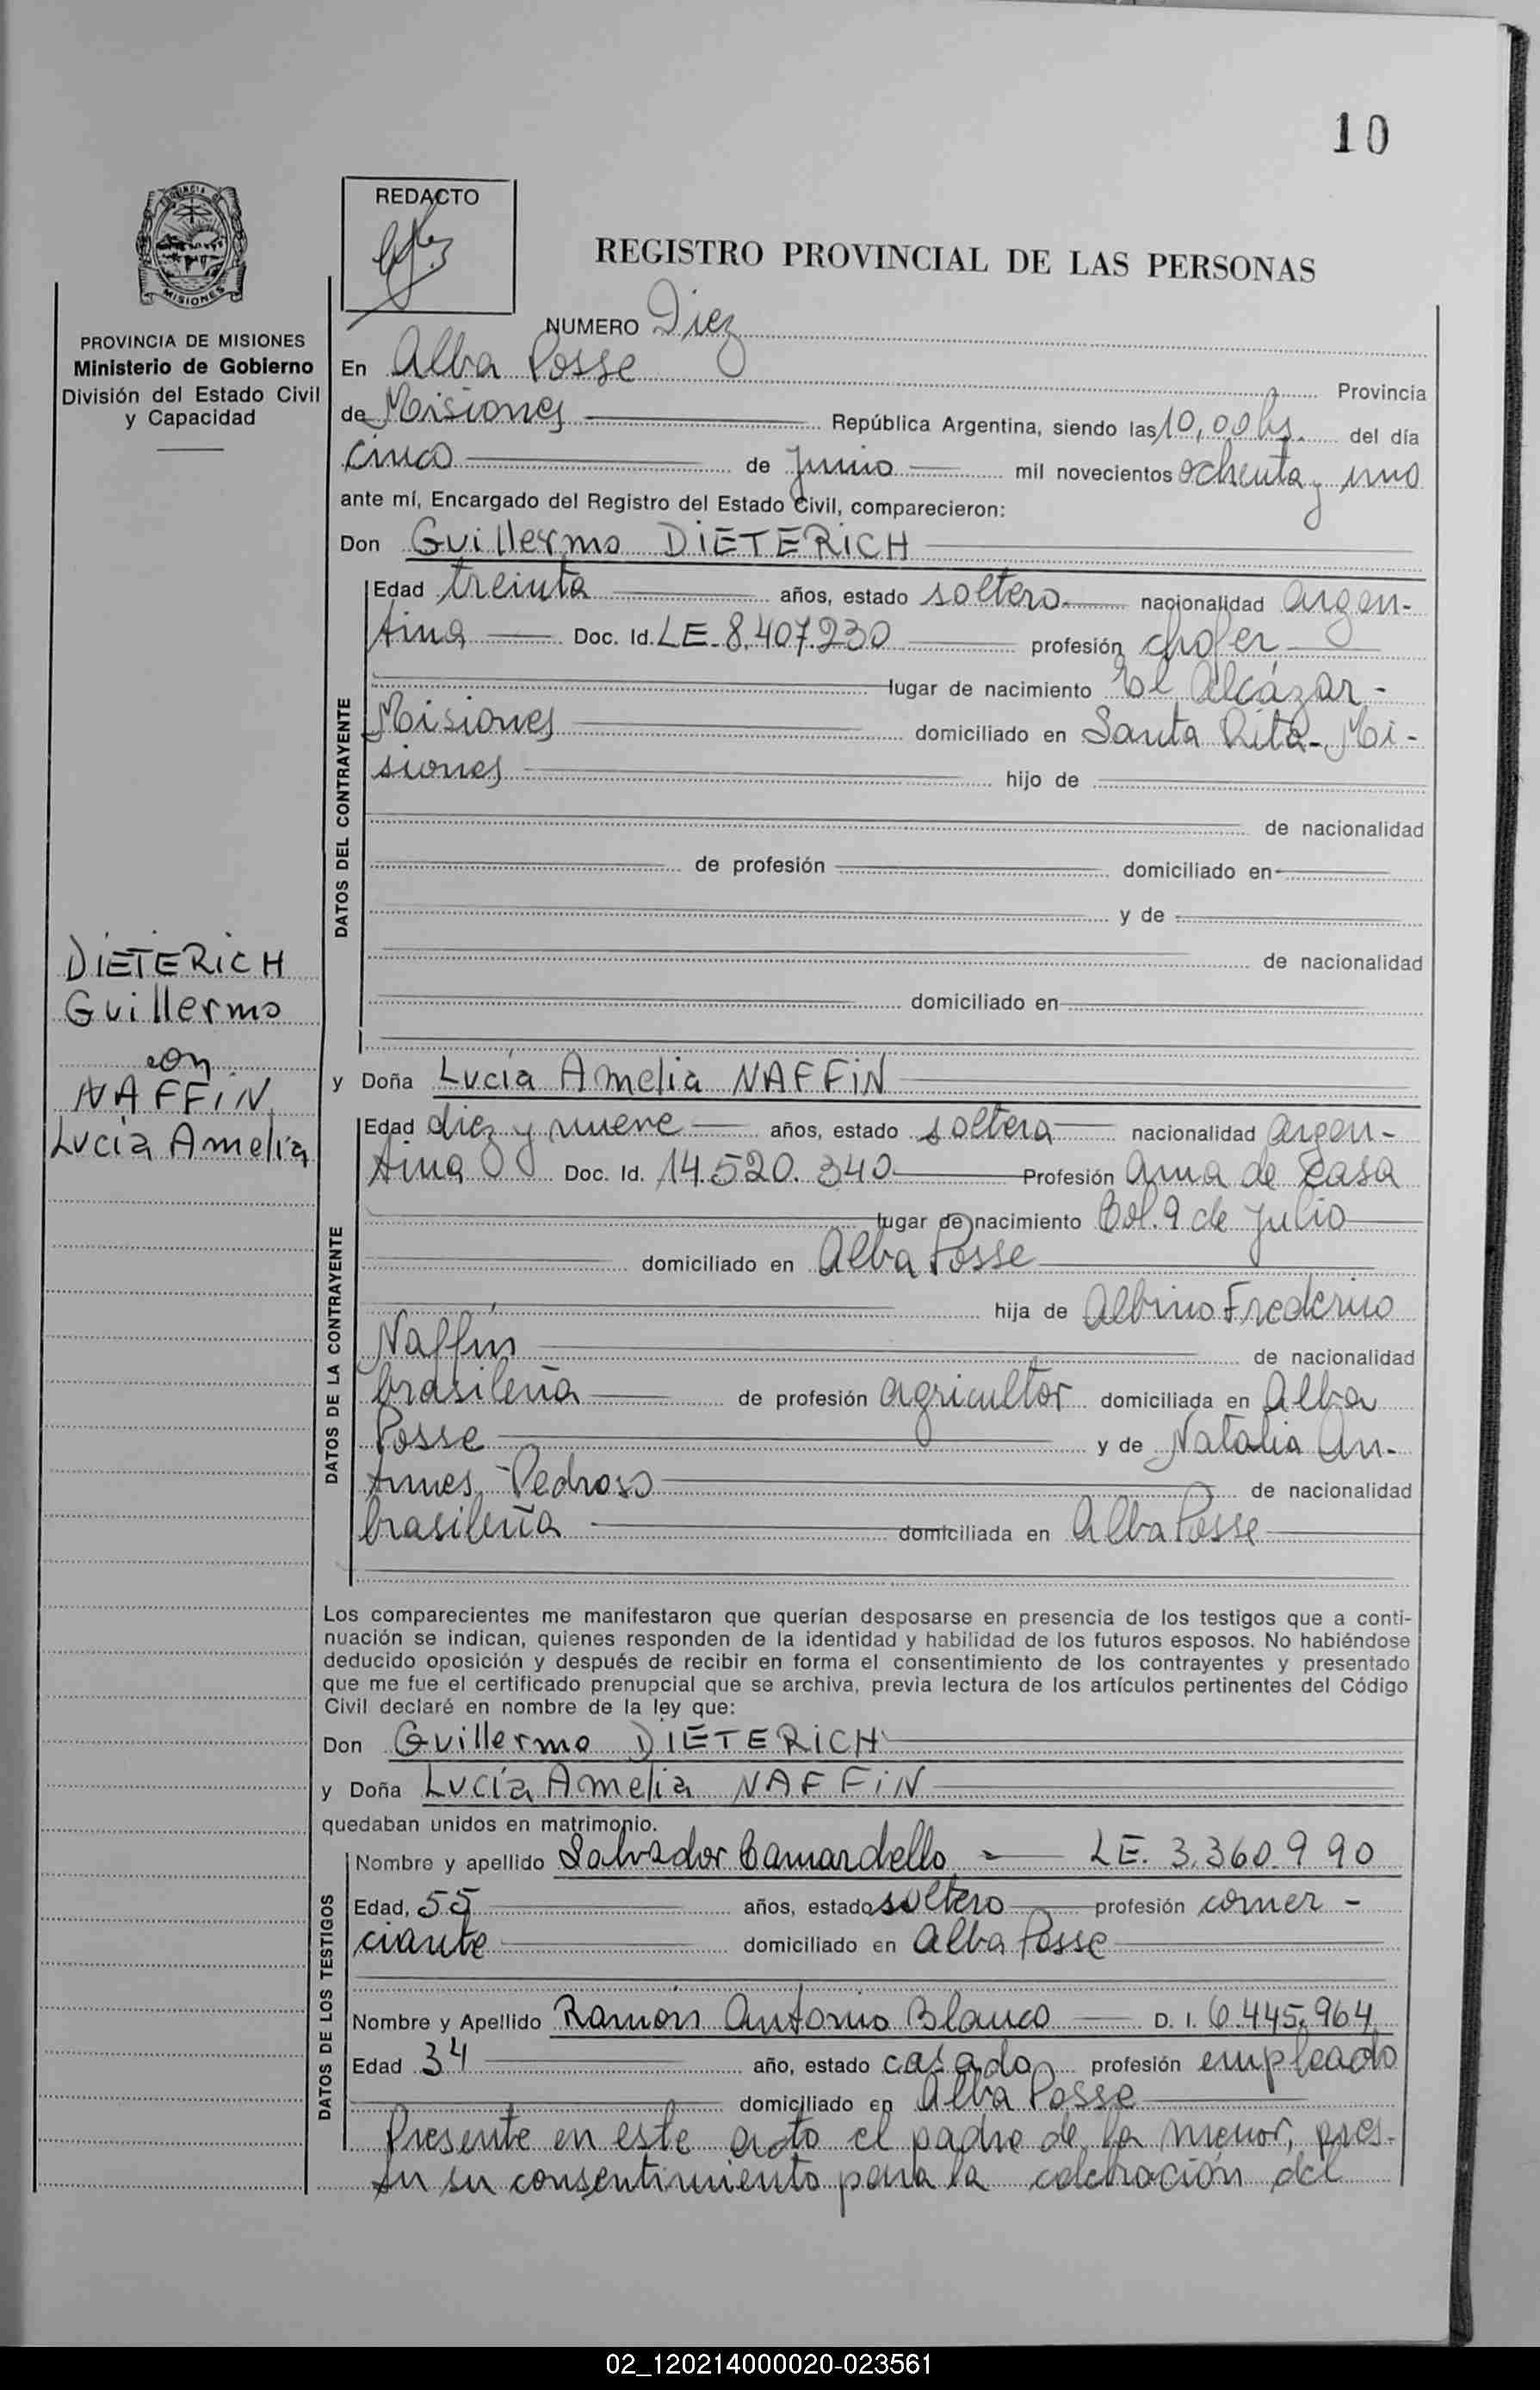 10
REDACTO
REGISTRO PROVINCIAL DE LAS PERSONAS
MISIONES
PROVINCIA DE MISIONES
Ministerio de Gobierno
División del Estado Civil
y Capacidad
NUMERO Diez
En Alba Posse Provincia
de Misiones República Argentina, siendo las 10,00 hs. del día
cinco de junio mil novecientos ochenta y uno
ante mí, Encargado del Registro del Estado Civil, comparecieron:
Don Guillermo DIETERICH
DATOS DEL CONTRAYENTE
Edad treinta años, estado soltero nacionalidad argen-
tina Doc. Id. LE. 8.407.230 profesión chofer
lugar de nacimiento El Alcázar -
Misiones domiciliado en Santa Rita - Mi-
siones hijo de
de nacionalidad
de profesión domiciliado en
y de
de nacionalidad
domiciliado en
DIETERICH
Guillermo
con
NAFFIN
Lucía Amelia
y Doña Lucía Amelia NAFFIN
DATOS DE LA CONTRAYENTE
Edad diez y nueve años, estado soltera nacionalidad argen-
tina Doc. Id. 14.520.340 Profesión ama de casa
lugar de nacimiento Col. 9 de Julio
domiciliado en Alba Posse
hija de Albino Frederico
Naffin de nacionalidad
brasileña de profesión agricultor domiciliada en Alba
Posse y de Natalia An-
tunes Pedroso de nacionalidad
brasileña domiciliada en Alba Posse
Los comparecientes me manifestaron que querían desposarse en presencia de los testigos que a conti-
nuación se indican, quienes responden de la identidad y habilidad de los futuros esposos. No habiéndose
deducido oposición y después de recibir en forma el consentimiento de los contrayentes y presentado
que me fue el certificado prenupcial que se archiva, previa lectura de los artículos pertinentes del Código
Civil declaré en nombre de la ley que:
Don Guillermo DIETERICH
y Doña Lucía Amelia NAFFIN
quedaban unidos en matrimonio.
DATOS DE LOS TESTIGOS
Nombre y apellido Salvador Camardello - LE. 3.360.990
Edad, 55 años, estado soltero profesión comer-
ciante domiciliado en Alba Posse
Nombre y Apellido Ramón Antonio Blanco D. I. 6.445.964
Edad 34 año, estado casado profesión empleado
domiciliado en Alba Posse
Presente en este acto el padre de la menor, pres-
ta su consentimiento para la celebración del
02_120214000020-023561